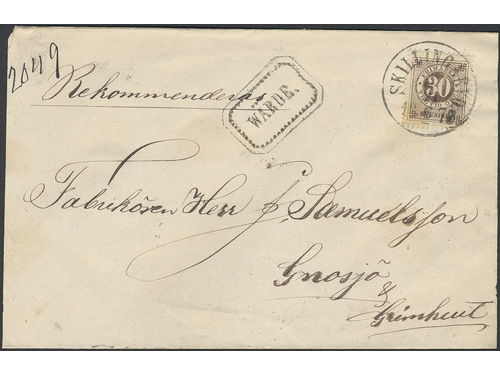 2049
Rekommenderas
WÄRDE.
SKILLINGARYD
30
Fabrikören Herr J. Samuelsson
Gnosjö
&
Grimhult